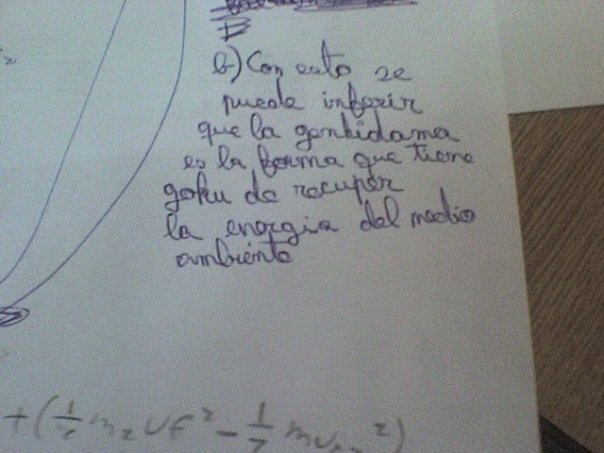 b) Con esto se
puede inferir
que la genkidama
es la forma que tiene
goku de recuper
la energia del medio
ambiente
+ (1/2 m₂ vf² - 1/2 m